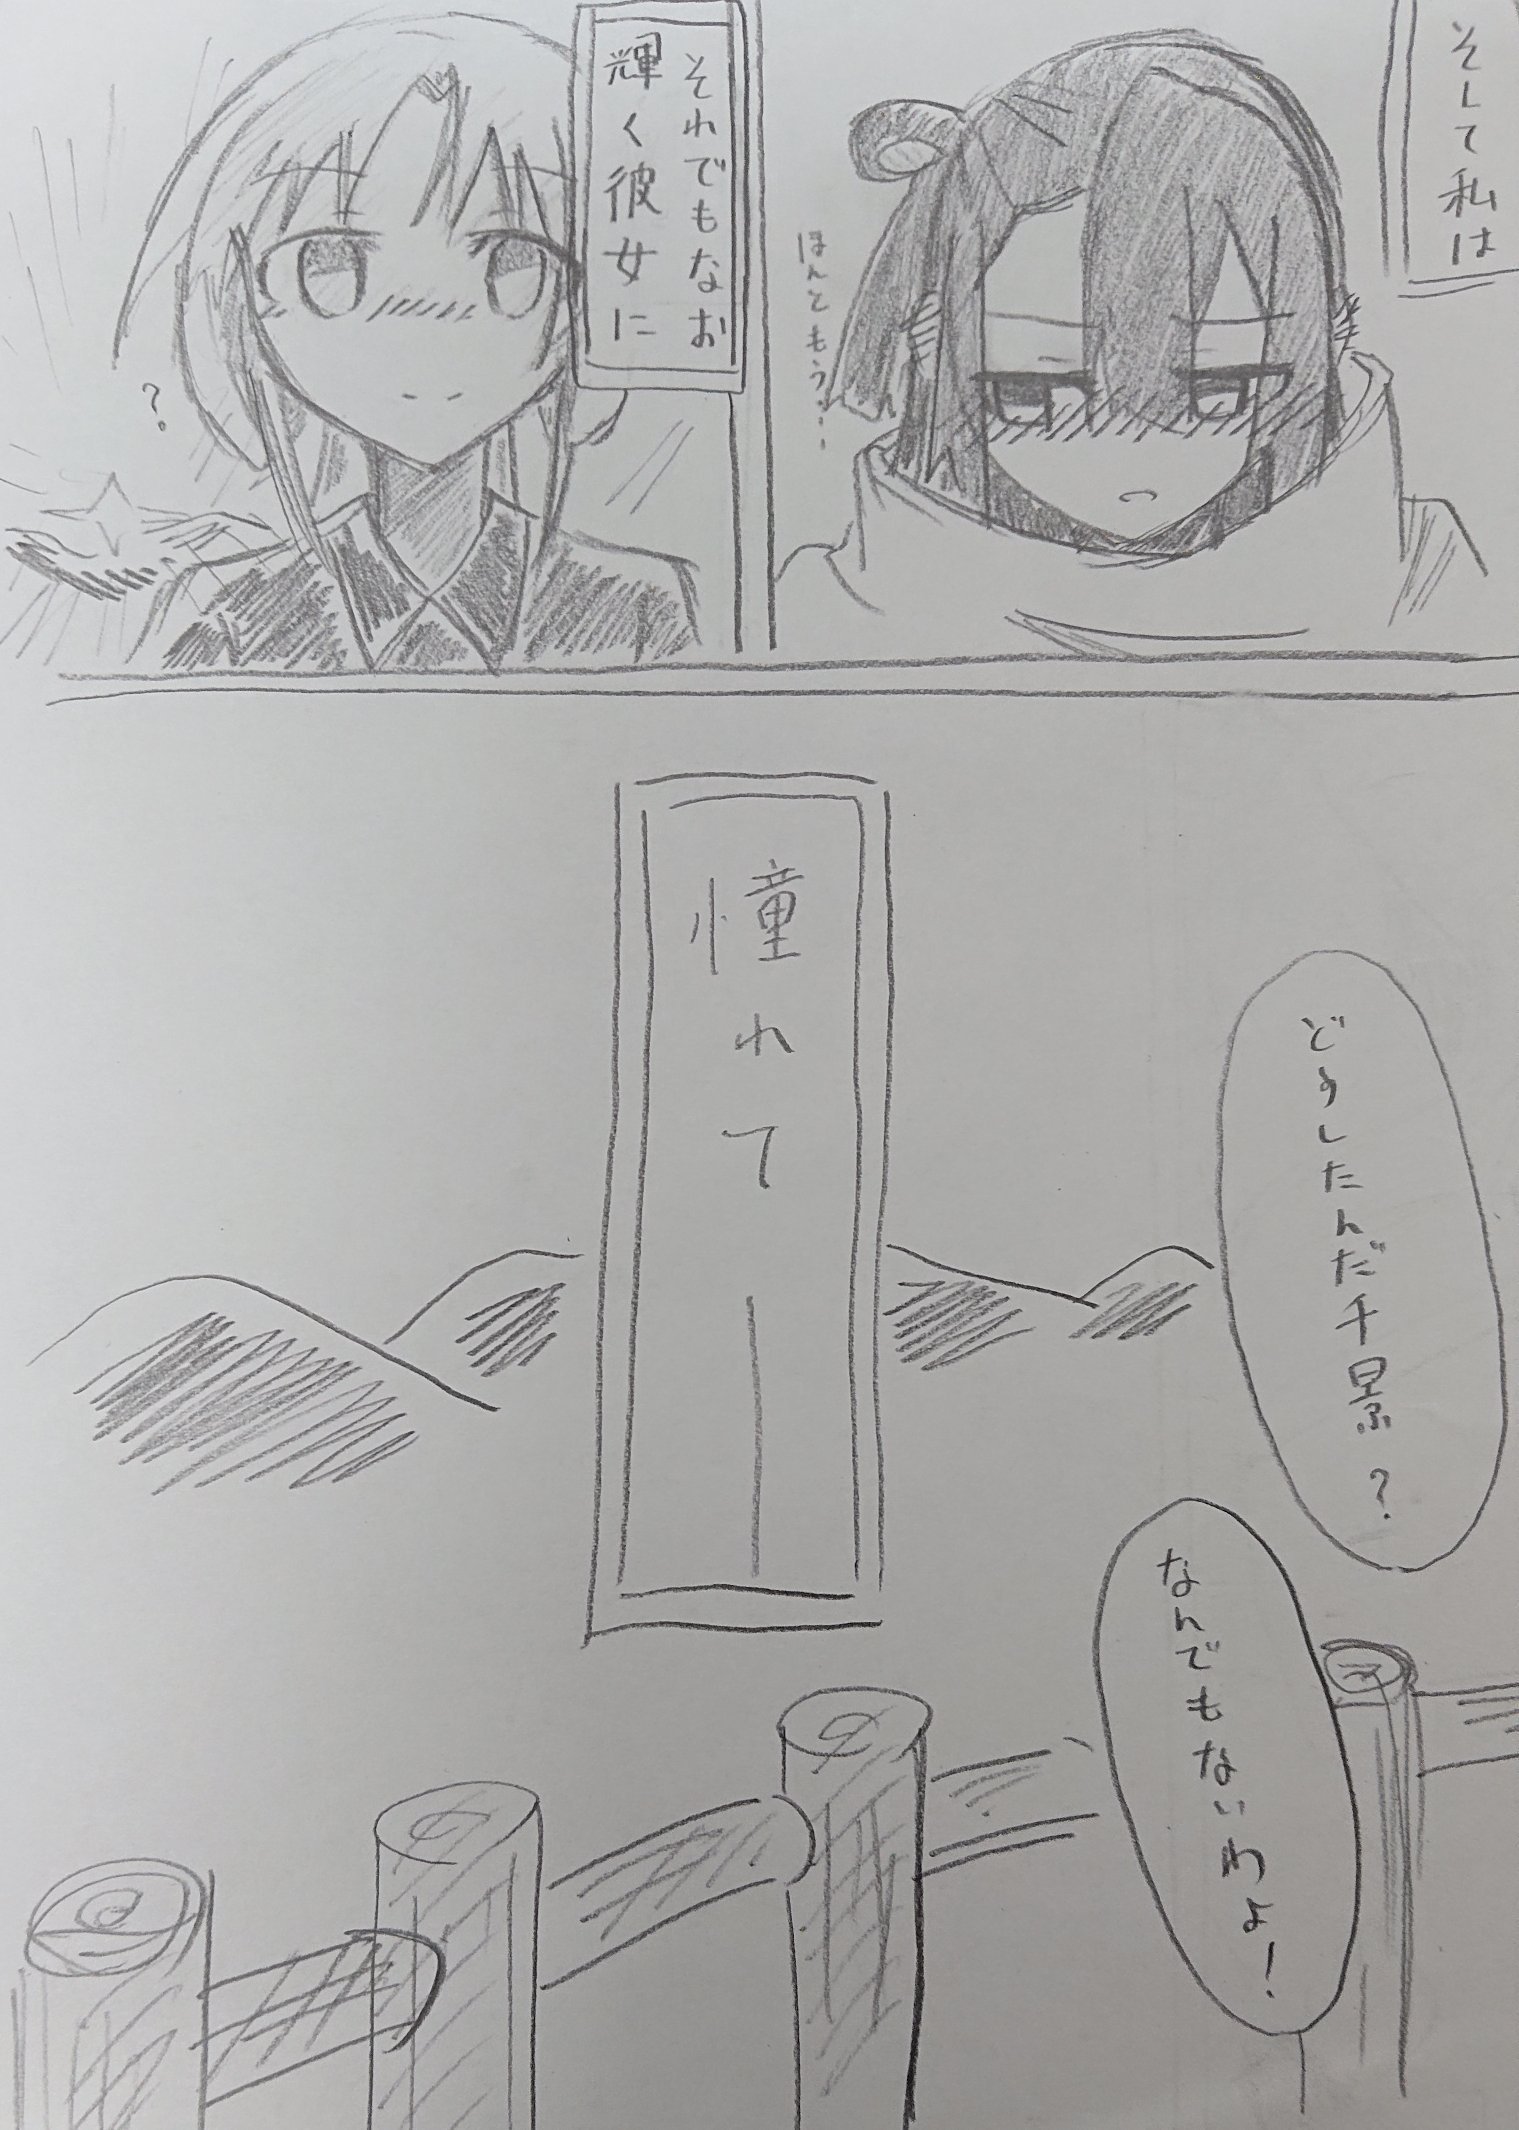 そして私は
ほんともう…
それでもなお
輝く彼女に
?
どうしたんだ千景?
憧れて―
なんでもないわよ!